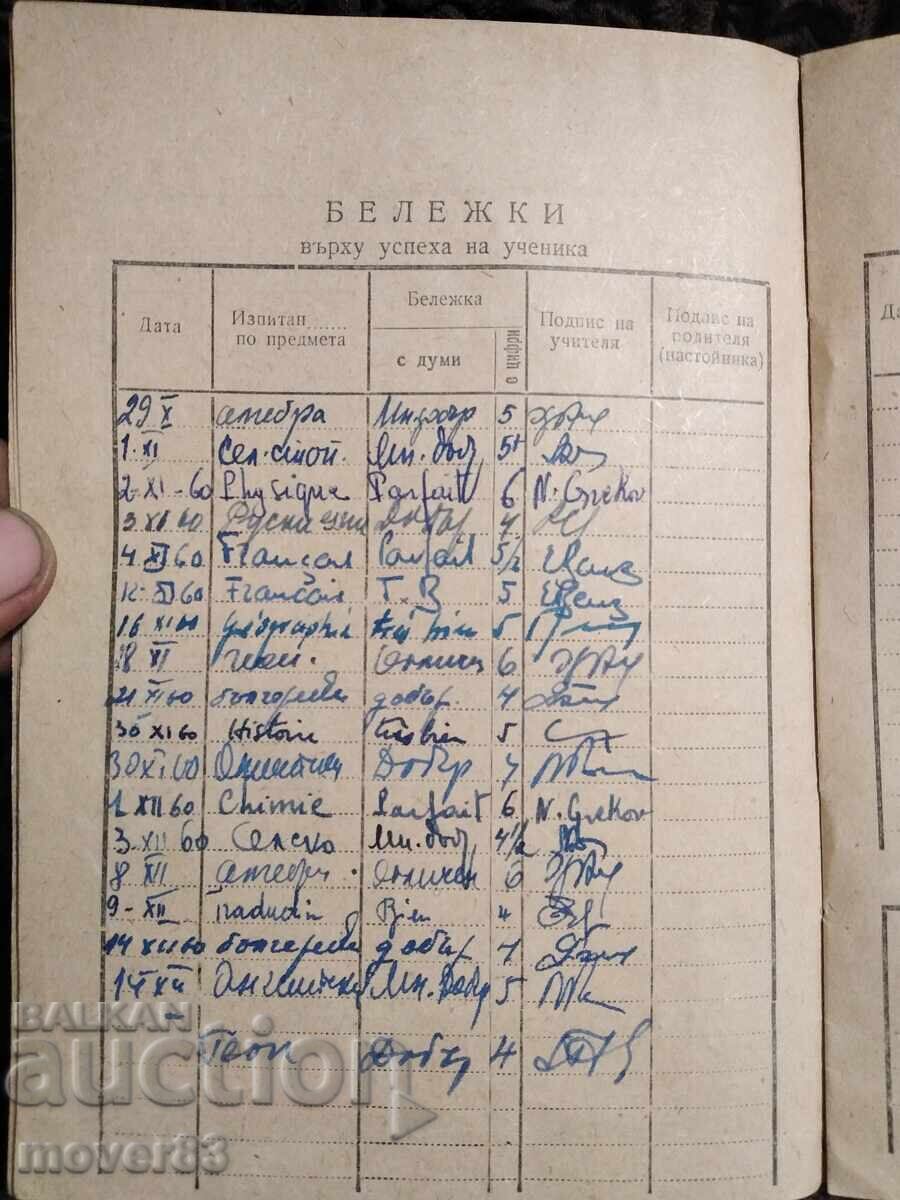 БЕЛЕЖКИ
върху успеха на ученика
Дата Изпитан по предмета Бележка с думи с цифри Подпис на учителя Подпис на родителя (настойника)
29 X алгебра Мн. добър 5
1. XI Сел. стоп. Мн. доб. 5+
2-XI-60 Physique Parfait 6 N. Grekov
3 XI 60 Руски език Добър 4
4 XI 60 Français Parfait 5 1/2
12 XI 60 Français T.B 5
16 XI 60 géographie très bien 5
18 XI геом. Отличен 6
21 XI 60 български добър 4
30 XI 60 Histoire très bien 5
30 XI 60 Добър 4
1 XII 60 Chimie Parfait 6 N. Grekov
3-XII 60 Селско Мн. доб. 4 1/2
8 XII алгебра Отличен 6
9-XII Bien 4
14 XII 60 български добър 4
14 XII Английски Мн. Добър 5
Геом Добър 4
Да
БАЛКАН
auction
mover83